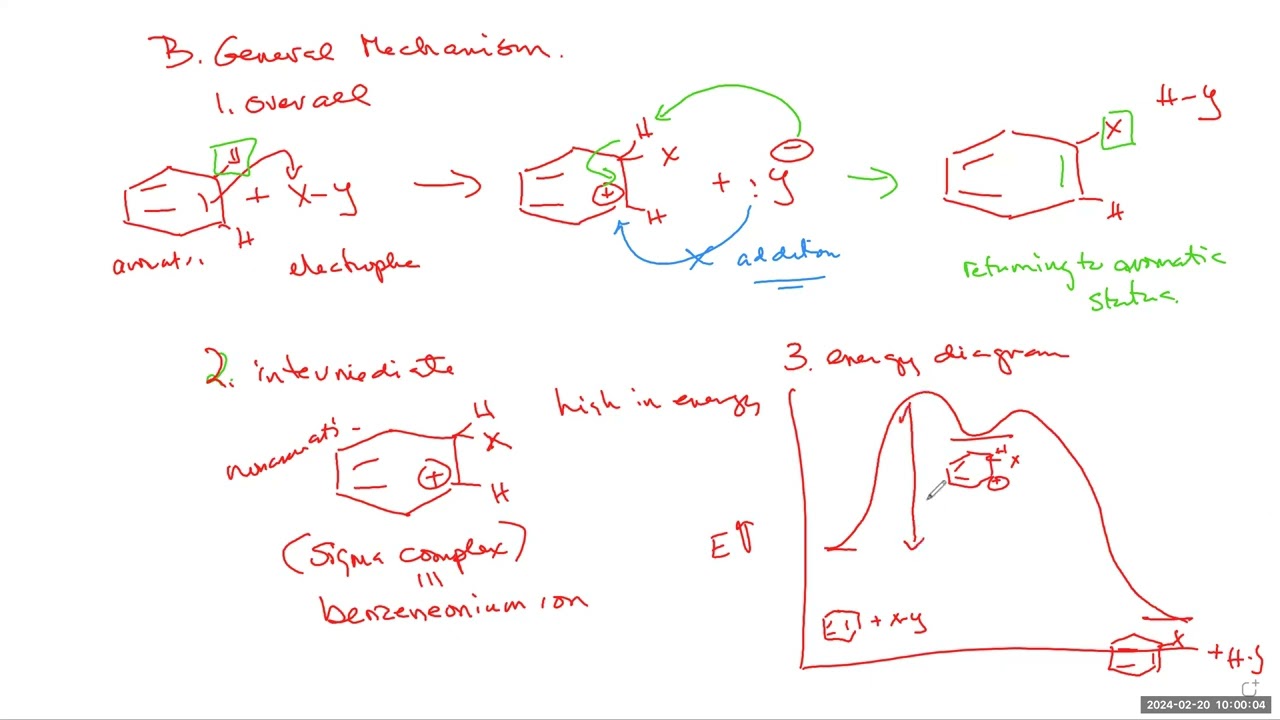 B. General Mechanism.
1. overall
H
+ X-Y
H
aromatic
electrophile
H
X
+
H
+ :Y
−
X addition
H-Y
X
H
returning to aromatic
status.
2. intermediate
high in energy
nonaromatic
H
X
+
H
(Sigma complex)
benzeneonium ion
3. energy diagram
E
H
X
+
+ X-Y
X
+ H-Y
2024-02-20 10:00:04